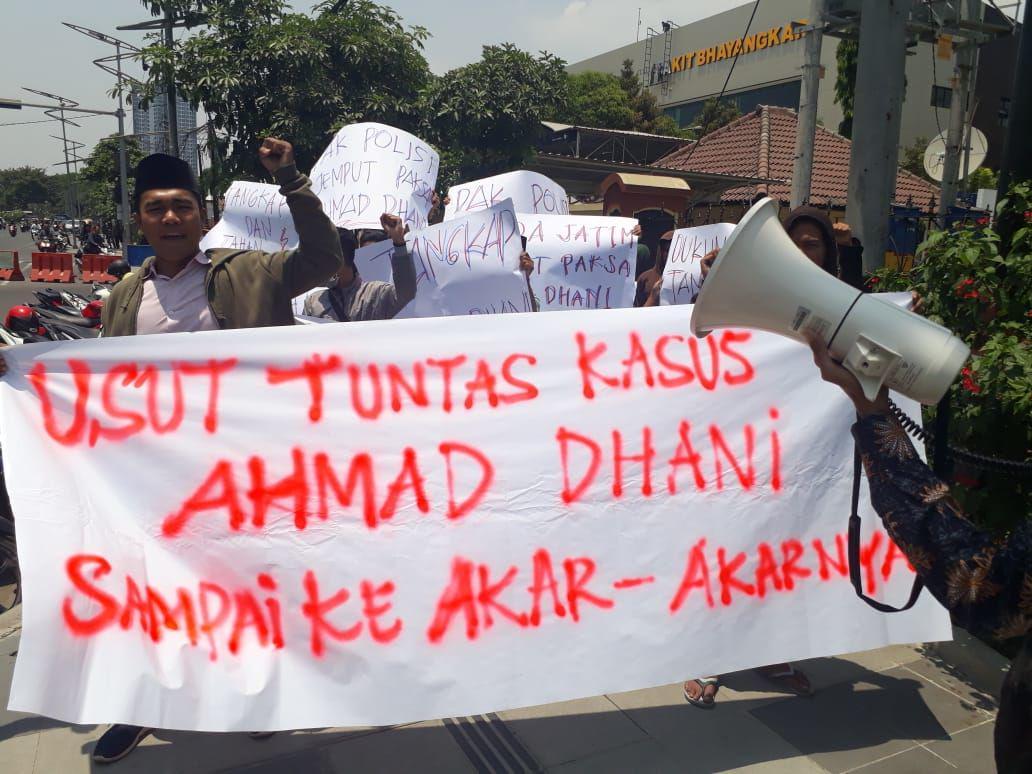 KIT BHAYANGKA
POLISI
JEMPUT PAKSA
AHMAD DHANI
TANGKAP
DAN
TAHAN
POL
TANGKAP
DHANI
JATIM
PAKSA
DHANI
USUT TUNTAS KASUS
AHMAD DHANI
SAMPAI KE AKAR-AKARNYA